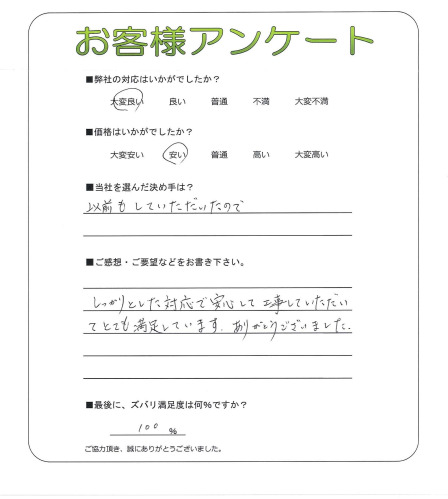 お客様アンケート
■弊社の対応はいかがでしたか？
大変良い 良い 普通 不満 大変不満
■価格はいかがでしたか？
大変安い 安い 普通 高い 大変高い
■当社を選んだ決め手は？
以前もしていただいたので
■ご感想・ご要望などをお書き下さい。
しっかりとした対応で安心して工事していただい
てとても満足しています。ありがとうございました。
■最後に、ズバリ満足度は何%ですか？
100 %
ご協力頂き、誠にありがとうございました。